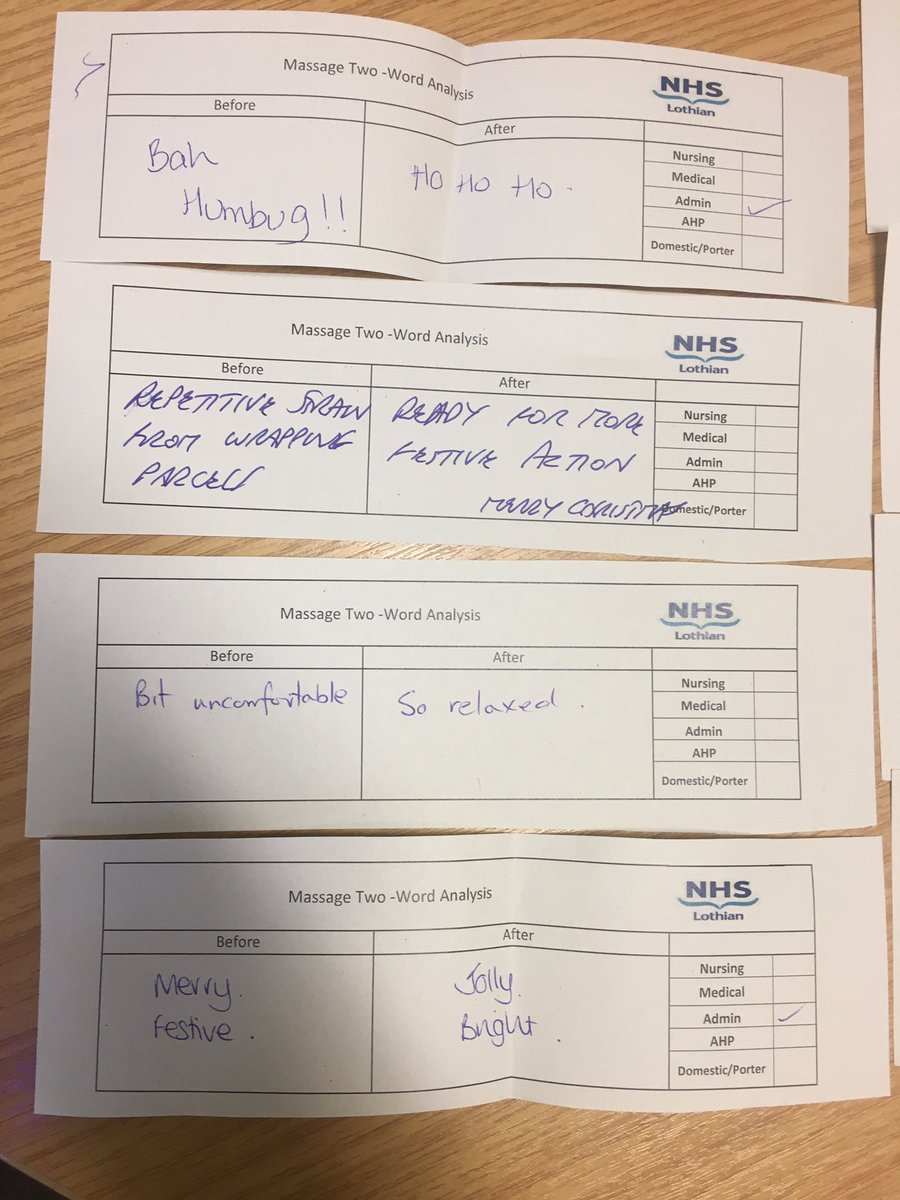 Massage Two -Word Analysis
NHS
Lothian
Before
After
Bah
Humbug!!
Ho Ho Ho.
Nursing
Medical
Admin ✓
AHP
Domestic/Porter
Massage Two -Word Analysis
NHS
Lothian
Before
After
REPETITIVE STRAIN
FROM WRAPPING
PARCELS
READY FOR MORE
FESTIVE ACTION
MERRY CHRISTMAS
Nursing
Medical
Admin
AHP
Domestic/Porter
Massage Two -Word Analysis
NHS
Lothian
Before
After
Bit uncomfortable
So relaxed.
Nursing
Medical
Admin
AHP
Domestic/Porter
Massage Two -Word Analysis
NHS
Lothian
Before
After
Merry.
Festive.
Jolly.
Bright.
Nursing
Medical
Admin ✓
AHP
Domestic/Porter